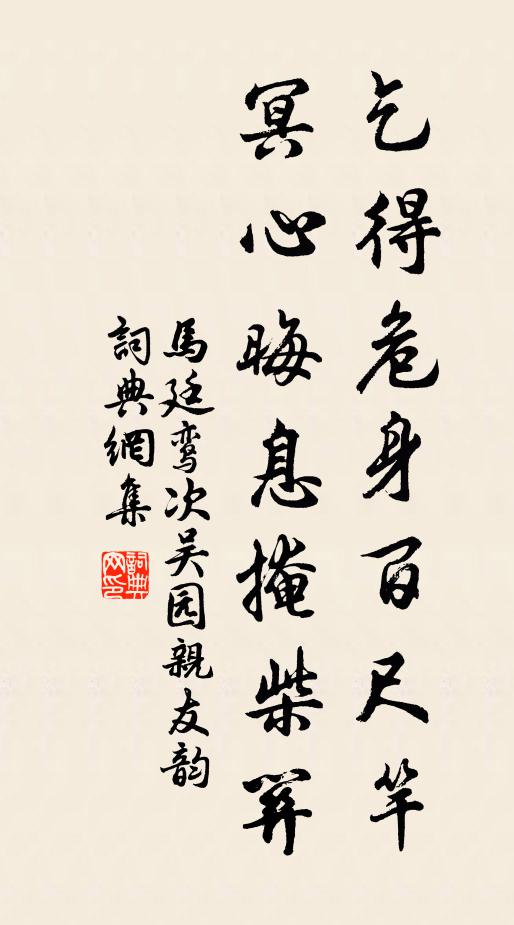 乞得危身百尺竿
冥心晦息掩柴關
馬廷鸾次吴园親友韵
詞典網集
詞典
网印